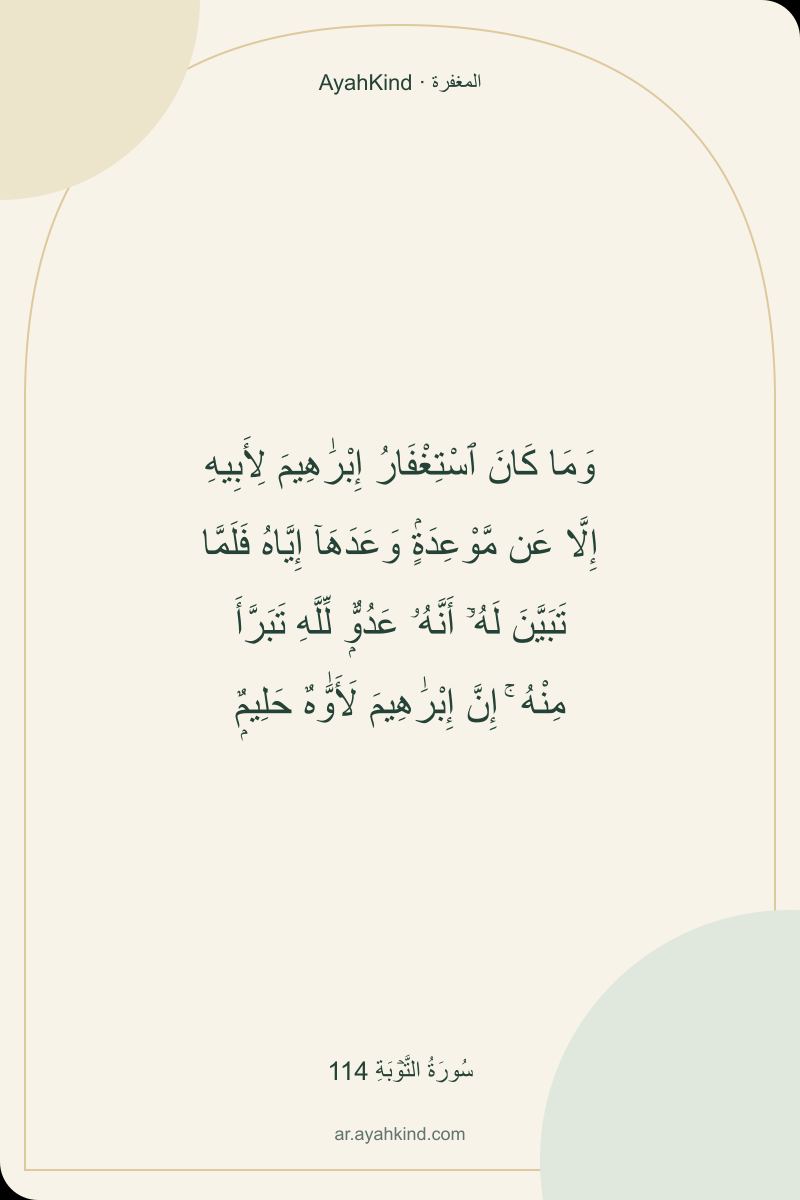 AyahKind · المغفرة
وَمَا كَانَ ٱسْتِغْفَارُ إِبْرَٰهِيمَ لِأَبِيهِ
إِلَّا عَن مَّوْعِدَةٍۢ وَعَدَهَآ إِيَّاهُ فَلَمَّا
تَبَيَّنَ لَهُۥٓ أَنَّهُۥ عَدُوٌّۭ لِّلَّهِ تَبَرَّأَ
مِنْهُ ۚ إِنَّ إِبْرَٰهِيمَ لَأَوَّٰهٌ حَلِيمٌۭ
سُورَةُ التَّوۡبَةِ 114
ar.ayahkind.com